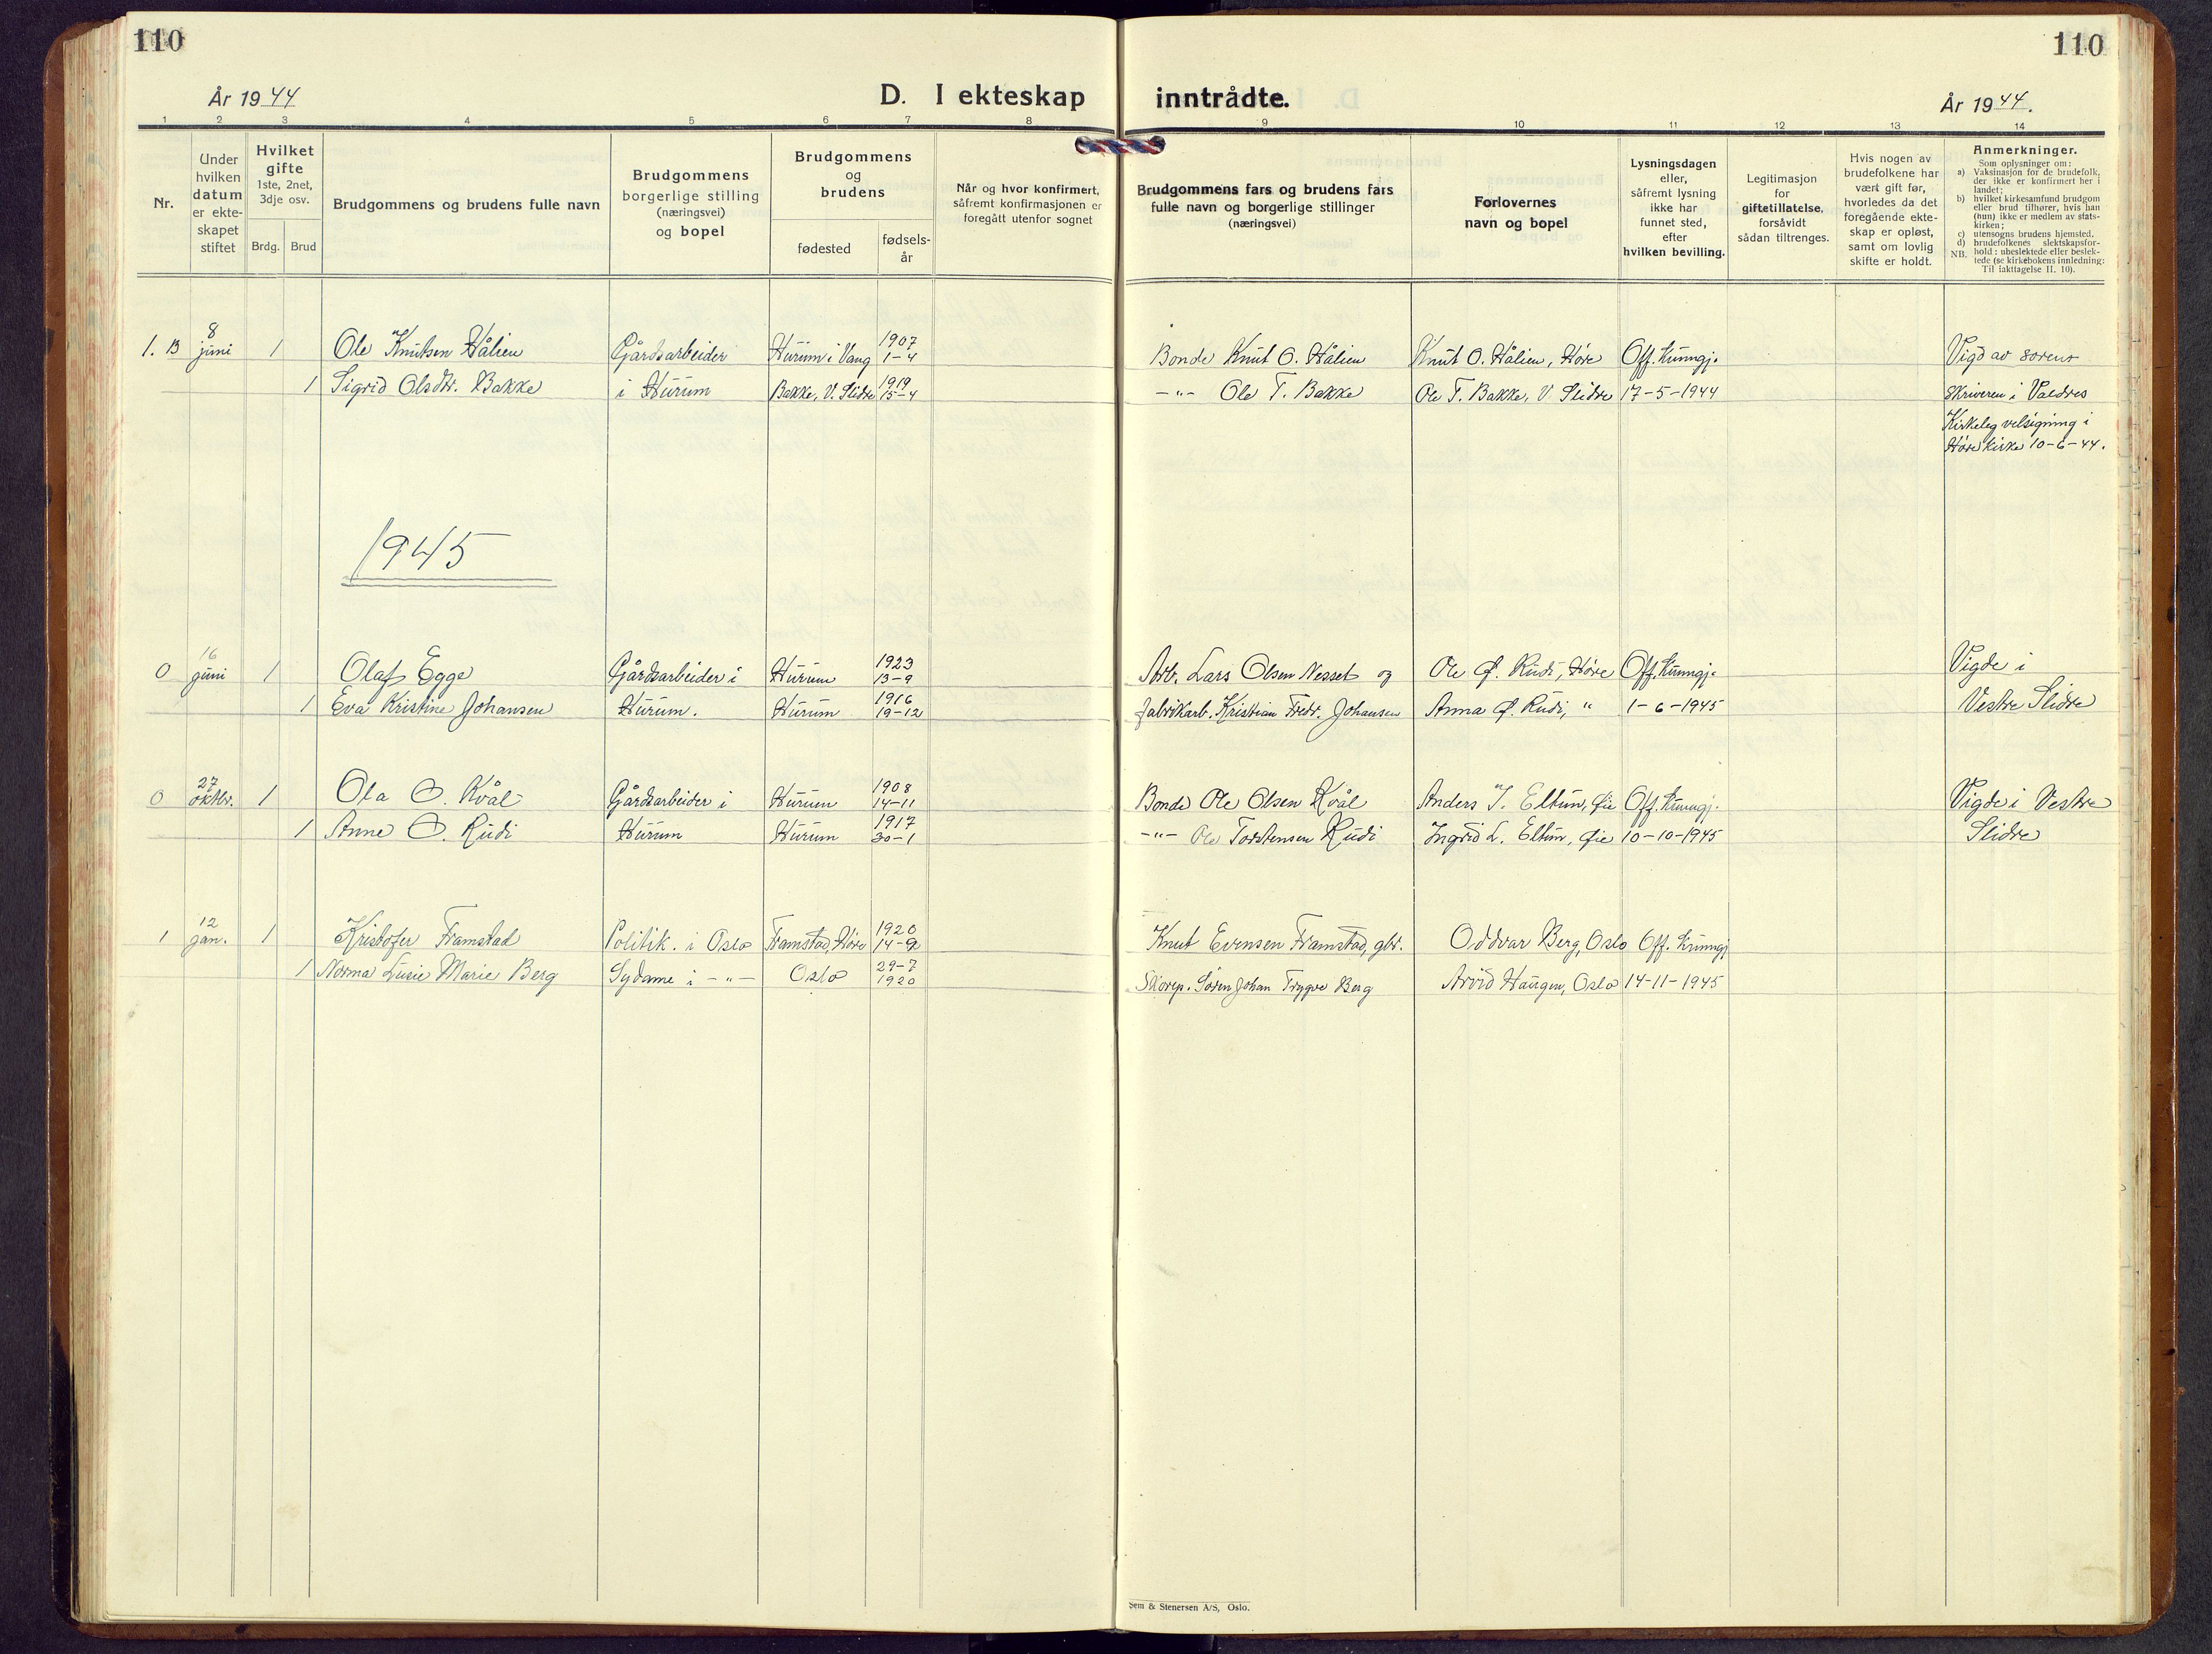 110
110
År 1944
D. I ekteskap inntrådte.
År 1944.
1 2 3 4 5 6 7 8 9 10 11 12 13 14
Nr.
Under hvilken datum er ekte-skapet stiftet
Hvilket gifte 1ste, 2net, 3dje osv.
Brdg. Brud
Brudgommens og brudens fulle navn
Brudgommens borgerlige stilling (næringsvei) og bopel
Brudgommens og brudens
fødested
fødsels-år
Når og hvor konfirmert, såfremt konfirmasjonen er foregått utenfor sognet
Brudgommens fars og brudens fars fulle navn og borgerlige stillinger (næringsvei)
Forlovernes navn og bopel
Lysningsdagen eller, såfremt lysning ikke har funnet sted, efter hvilken bevilling.
Legitimasjon for giftetillatelse, forsåvidt sådan tiltrenges.
Hvis nogen av brudefolkene har vært gift før, hvorledes da det foregående ekte-skap er opløst, samt om lovlig skifte er holdt.
Anmerkninger.
Som oplysninger om:
a) Vaksinasjon for de brudefolk, der ikke er konfirmert her i landet;
b) hvilket kirkesamfund brudgom eller brud tilhører, hvis han (hun) ikke er medlem av stats-kirken;
c) utensogns brudens hjemsted.
d) brudefolkenes slektskapsfor-hold: ubeslektede eller beslek-tede (se kirkebokens innledning:
NB. Til iakttagelse II. 10).
1. B 8 juni 1 Ole Knutsen Hålien Gårdsarbeider Hurum i Vang 1907 1-4 Bonde Knut O. Hålien Knut O. Hålien, Høre Off. Kunngj. Vigd av soren
1 Sigrid Olsdtr. Bakke i Hurum Bakke, V. Slidre 1919 15-4 -"- Ole T. Bakke Ole T. Bakke, V. Slidre 17-5-1944 skriveren i Valdres
Kirkeleg velsigning i
Høre kirke 10-6-44.
1945
0 16 juni 1 Olaf Egge Gårdsarbeider i Hurum 1923 13-9 Arb. Lars Olsen Nesset og Ole Ø. Rudi, Høre Off. Kunngj. Vigde i
1 Eva Kristine Johansen Hurum. Hurum 1916 19-12 fabrikarb. Kristian Fredr. Johansen Anna Ø. Rudi, " 1-6-1945 Vestre Slidre
0 27 oktbr. 1 Ola O. Kvål Gårdsarbeider i Hurum 1908 14-11 Bonde Ole Olsen Kvål Anders I. Eltun, Øie Off. Kunngj. Vigde i Vestre
1 Anne O. Rudi Hurum Hurum 1917 30-1 -"- Ole Torstensen Rudi Ingrid L. Eltun, Øie 10-10-1945 Slidre
1 12 jan. 1 Kristofer Framstad Politik. i Oslo Framstad, Høre 1920 14-9 Knut Evensen Framstad, gbr. Oddvar Berg, Oslo Off. Kunngj
1 Norma Lusie Marie Berg Sydame i -"- Oslo 29-7 1920 Skorep. Søren Johan Trygve Berg Arvid Haugen, Oslo 14-11-1945
Sem & Stenersen A/S, Oslo.